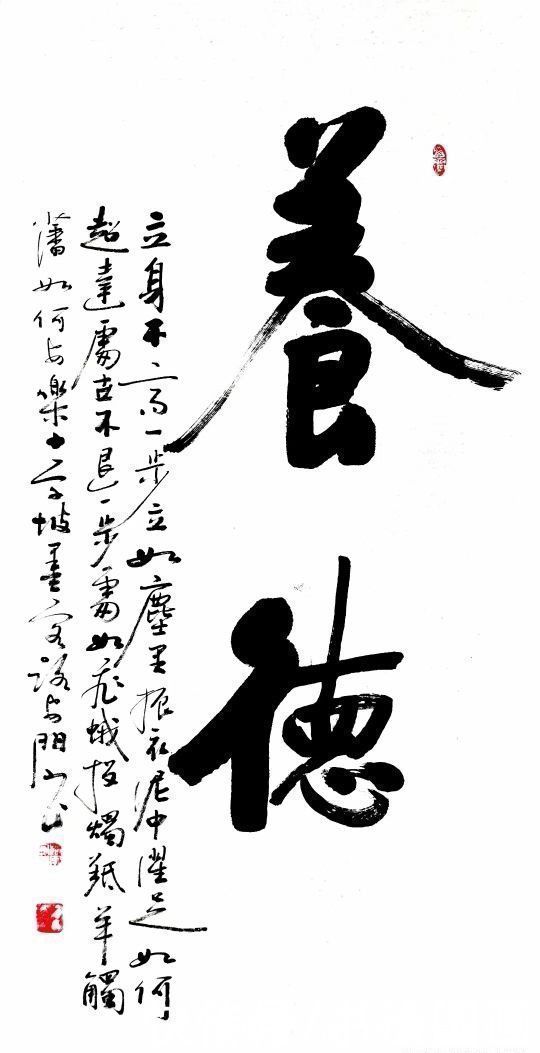 養德
立身不高一步立如塵里振衣泥中濯足如何
超達處世不退一步處如飛蛾投燭羝羊觸
藩如何安樂十字坡墨客